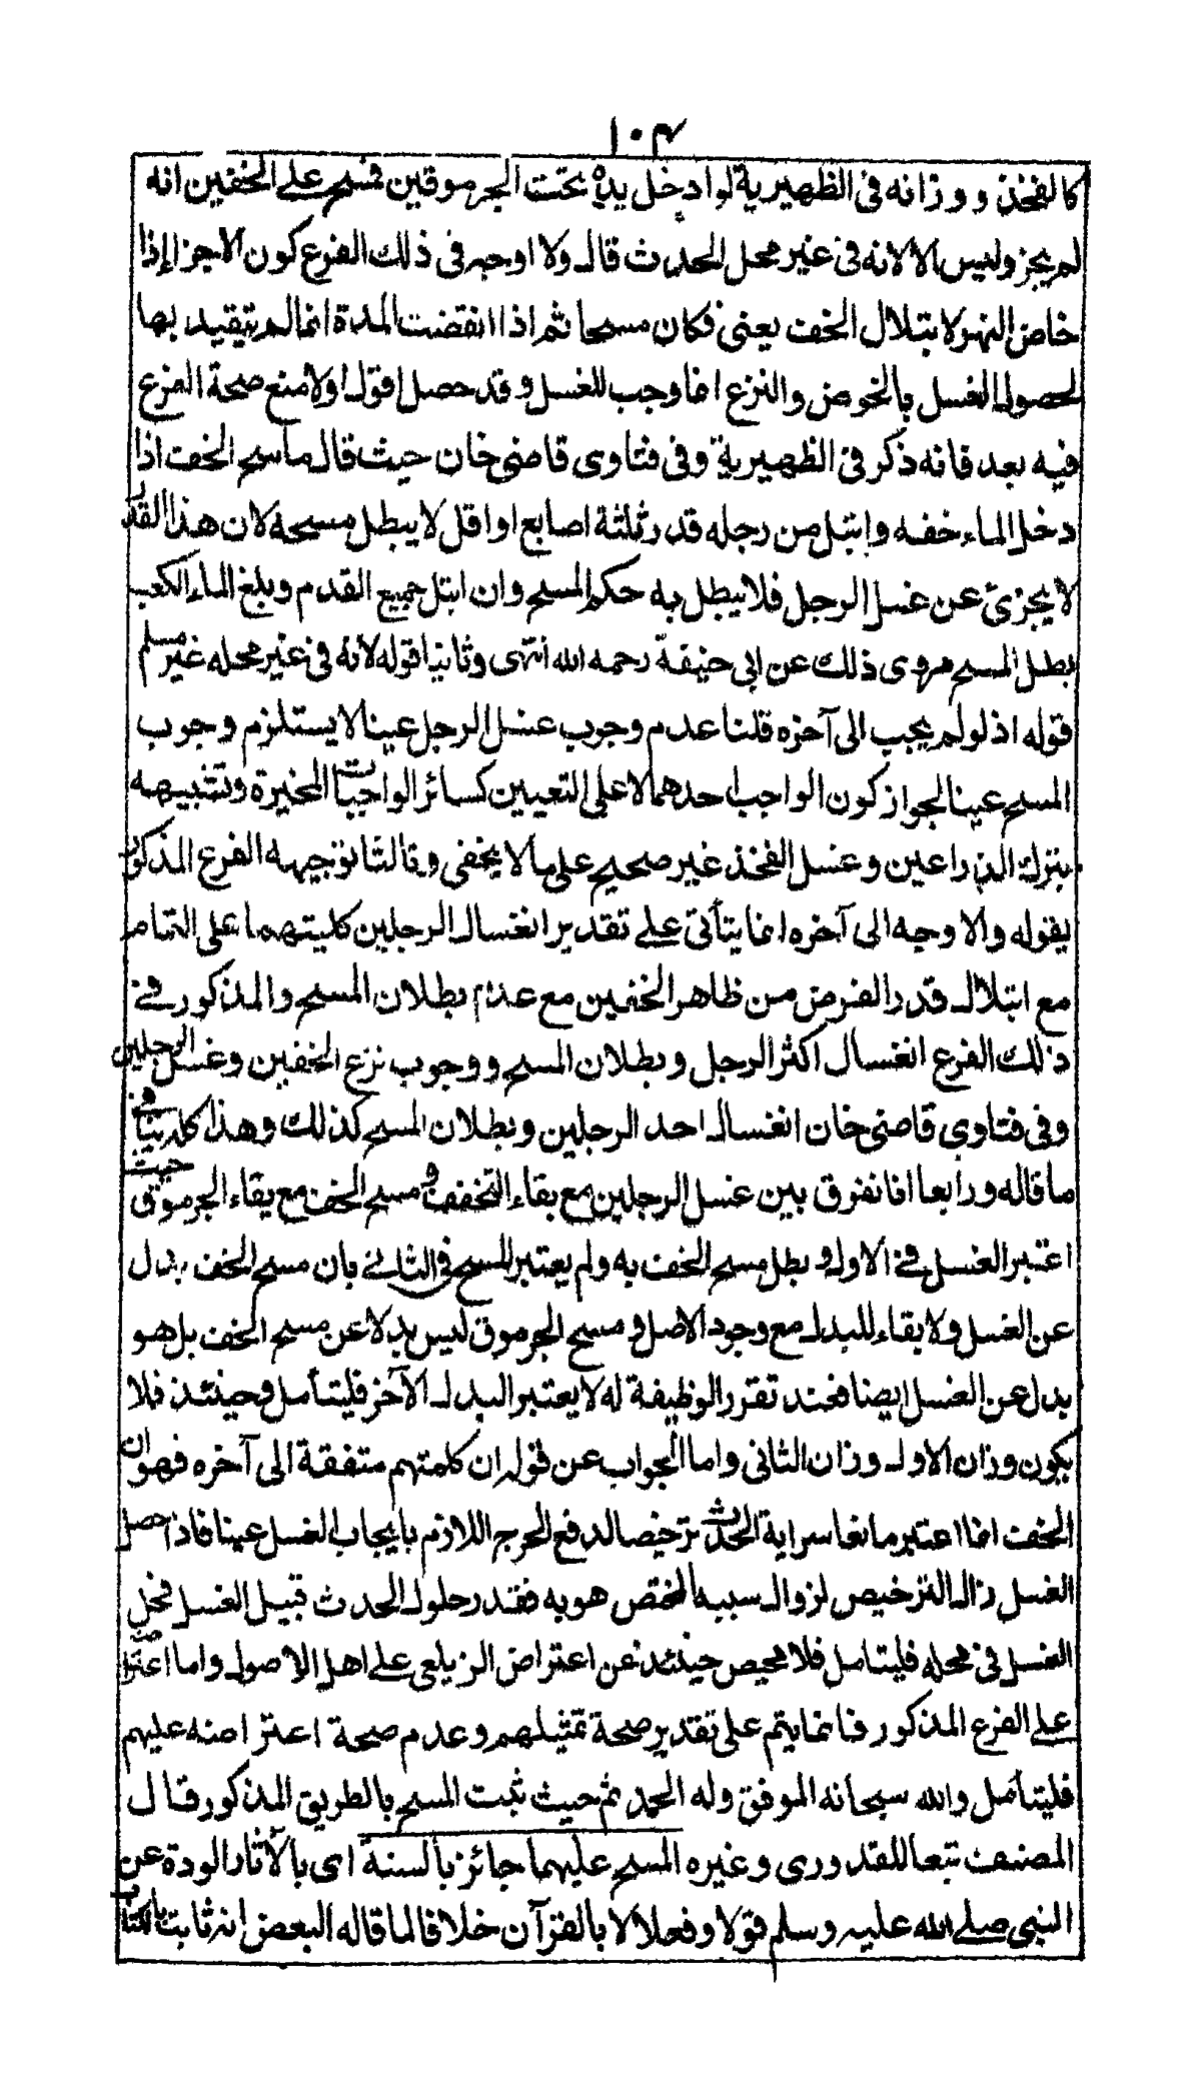 ١٠٣
كالفخذ ووزانه فى الظهيرية لوادخل يده تحت الجرموقين فمسح على الخفين انه
لم يجز وليس الا لانه فى غير محل الحدث قال ولا اوجه فى ذلك الفرع كون الاجزا إذا
خاض النهر لا بتلال الخف يعنى فكان مسحا ثم اذا انقضت المدة انما لم يتقيد بها
لحصول الغسل بالخوض والنزع انما وجب للغسل وقد حصل اقول اولا منع صحة الفرع
فيه بعد فانه ذكر فى الظهيرية وفى فتاوى قاضى خان حيث قال ماسح الخف اذا
دخل الماء خفه وابتل من رجله قدر ثلثة اصابع او اقل لا يبطل مسحه لان هذا القدر
لا يجزئ عن غسل الرجل فلا يبطل به حكم المسح وان ابتل جميع القدم وبلغ الماء الكعب
بطل المسح مروى ذلك عن ابى حنيفة رحمه الله انتهى وثانيا قوله لانه فى غير محله غير مسلم
قوله اذ لو لم يجب الى آخره قلنا عدم وجوب غسل الرجل عينا لا يستلزم وجوب
المسح عينا لجواز كون الواجب احدهما لا على التعيين كسائر الواجبات المخيرة وتشبيهه
بترك الذراعين وغسل الفخذ غير صحيح على ما لا يخفى وثالثا توجيهه الفرع المذكور
بقوله والاوجه الى آخره انما يتأتى على تقدير انغسال الرجلين كليتهما على التمام
مع ابتلال قدر الفرض من ظاهر الخفين مع عدم بطلان المسح والمذكور فى
ذلك الفرع انغسال اكثر الرجل وبطلان المسح ووجوب نزع الخفين وغسل الرجلين
وفى فتاوى قاضى خان انغسال احد الرجلين وبطلان المسح كذلك وهذا كله ينافى
ما قاله ورابعا انا نفرق بين غسل الرجلين مع بقاء التخفف ومسح الخف مع بقاء الجرموق حيث
اعتبر الغسل فى الاول وبطل مسح الخف به ولم يعتبر المسح فى الثانى بان مسح الخف بدل
عن الغسل ولا بقاء للبدل مع وجود الاصل ومسح الجرموق ليس بدلا عن مسح الخف بل هو
بدل عن الغسل ايضا فعند تقرر الوظيفة له لا يعتبر البدل الآخر فليتأمل وحينئذ فلا
يكون وزان الاول وزان الثانى واما الجواب عن قوله ان كلمتهم متفقة الى آخره فهو ان
الخف انما اعتبر مانعا سراية الحدث ترخيصا لدفع الحرج اللازم بايجاب الغسل عينا فاذا حصل
الغسل زال الترخيص لزوال سببه المختص هو به فقدر حلول الحدث قبيل الغسل فحل
الغسل فى محله فليتامل فلا محيص حينئذ عن اعتراض الزيلعى على اهل الاصول واما اعتراضه
على الفرع المذكور فانما يتم على تقدير صحة تمثيلهم وعدم صحة اعتراضه عليهم
فليتأمل والله سبحانه الموفق وله الحمد ثم حيث ثبت المسح بالطريق المذكور قال
المصنف تبعا للقدورى وغيره المسح عليهما جائز بالسنة اى بالآثار الودة عن
النبى صلى الله عليه وسلم قولا وفعلا لا بالقرآن خلافا لما قاله البعض انه ثابت بالكتاب